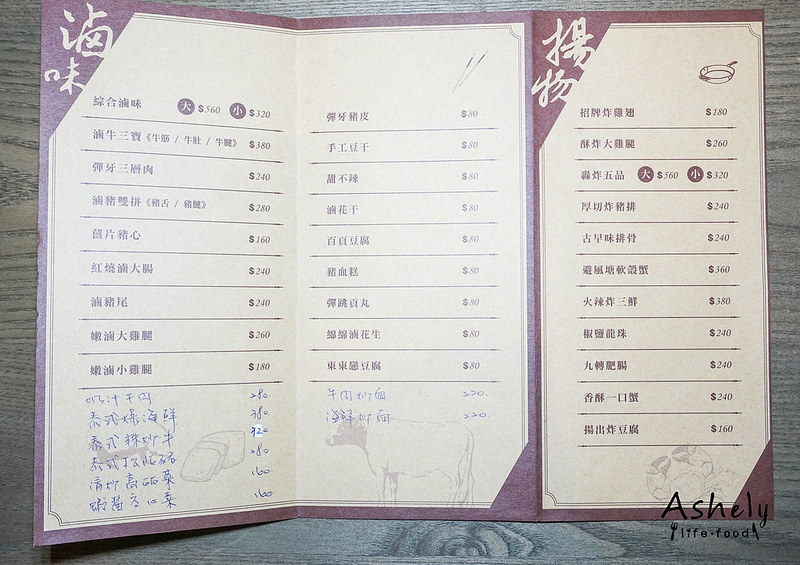 滷味
綜合滷味 大 $560 小 $320
滷牛三寶《牛筋 / 牛肚 / 牛腱》 $380
彈牙三層肉 $240
滷豬雙拼《豬舌 / 豬腱》 $280
薑片豬心 $160
紅燒滷大腸 $240
滷豬尾 $240
嫩滷大雞腿 $260
嫩滷小雞腿 $180
汁牛肉 280
泰式 海鮮 380
泰式辣炒牛 320
泰式 280
清炒高麗菜 160
蝦醬 菜 160
彈牙豬皮 $80
手工豆干 $80
甜不辣 $80
滷花干 $80
百頁豆腐 $80
豬血糕 $80
彈跳貢丸 $80
綿綿滷花生 $80
東東戀豆腐 $80
牛肉炒麵 220.
海鮮炒麵 220.
揚物
招牌炸雞翅 $180
酥炸大雞腿 $260
轟炸五品 大 $560 小 $320
厚切炸豬排 $240
古早味排骨 $240
避風塘軟殼蟹 $360
火辣炸三鮮 $380
椒鹽龍珠 $240
九轉肥腸 $240
香酥一口蟹 $240
揚出炸豆腐 $160
Ashely
life·food